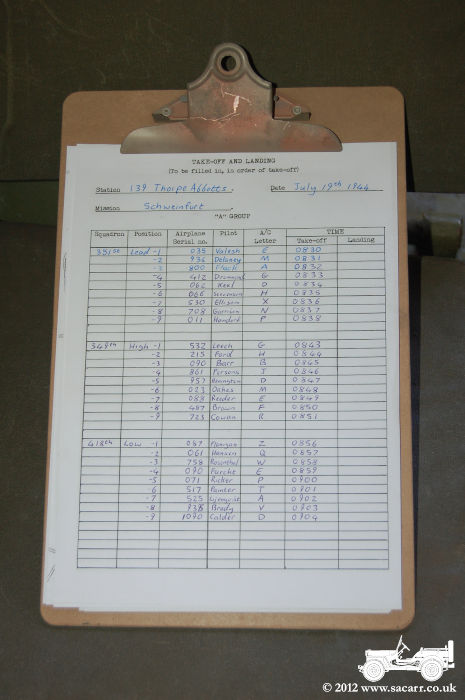 TAKE-OFF AND LANDING
(To be filled in, in order of take-off)
Station 139 Thorpe Abbotts. Date July 19th 1944
Mission Schweinfurt.
"A" GROUP
Squadron Position Airplane Serial no. Pilot A/C Letter TIME Take-off Landing
351st Lead -1 035 Valesh E 0830
-2 936 Delaney M 0831
-3 800 Flack A 0832
-4 412 Drummond G 0833
-5 062 Keel D 0834
-6 066 H 0835
-7 530 Ellison X 0836
-8 708 Garrison N 0837
-9 011 Hansford P 0838
349th High -1 532 Leech G 0843
-2 215 Ford H 0844
-3 090 Barr B 0845
-4 861 Persons J 0846
-5 957 D 0847
-6 023 Oakes M 0848
-7 088 Reeder E 0849
-8 487 Brown F 0850
-9 723 Cowan R 0851
418th Low -1 087 Z 0856
-2 061 Hansen Q 0857
-3 758 Rosenthal W 0858
-4 090 Furcht E 0859
-5 071 Ricker P 0900
-6 517 Painter T 0901
-7 525 A 0902
-8 938 Brady V 0903
-9 1090 Calder D 0904
© 2012 www.sacarr.co.uk